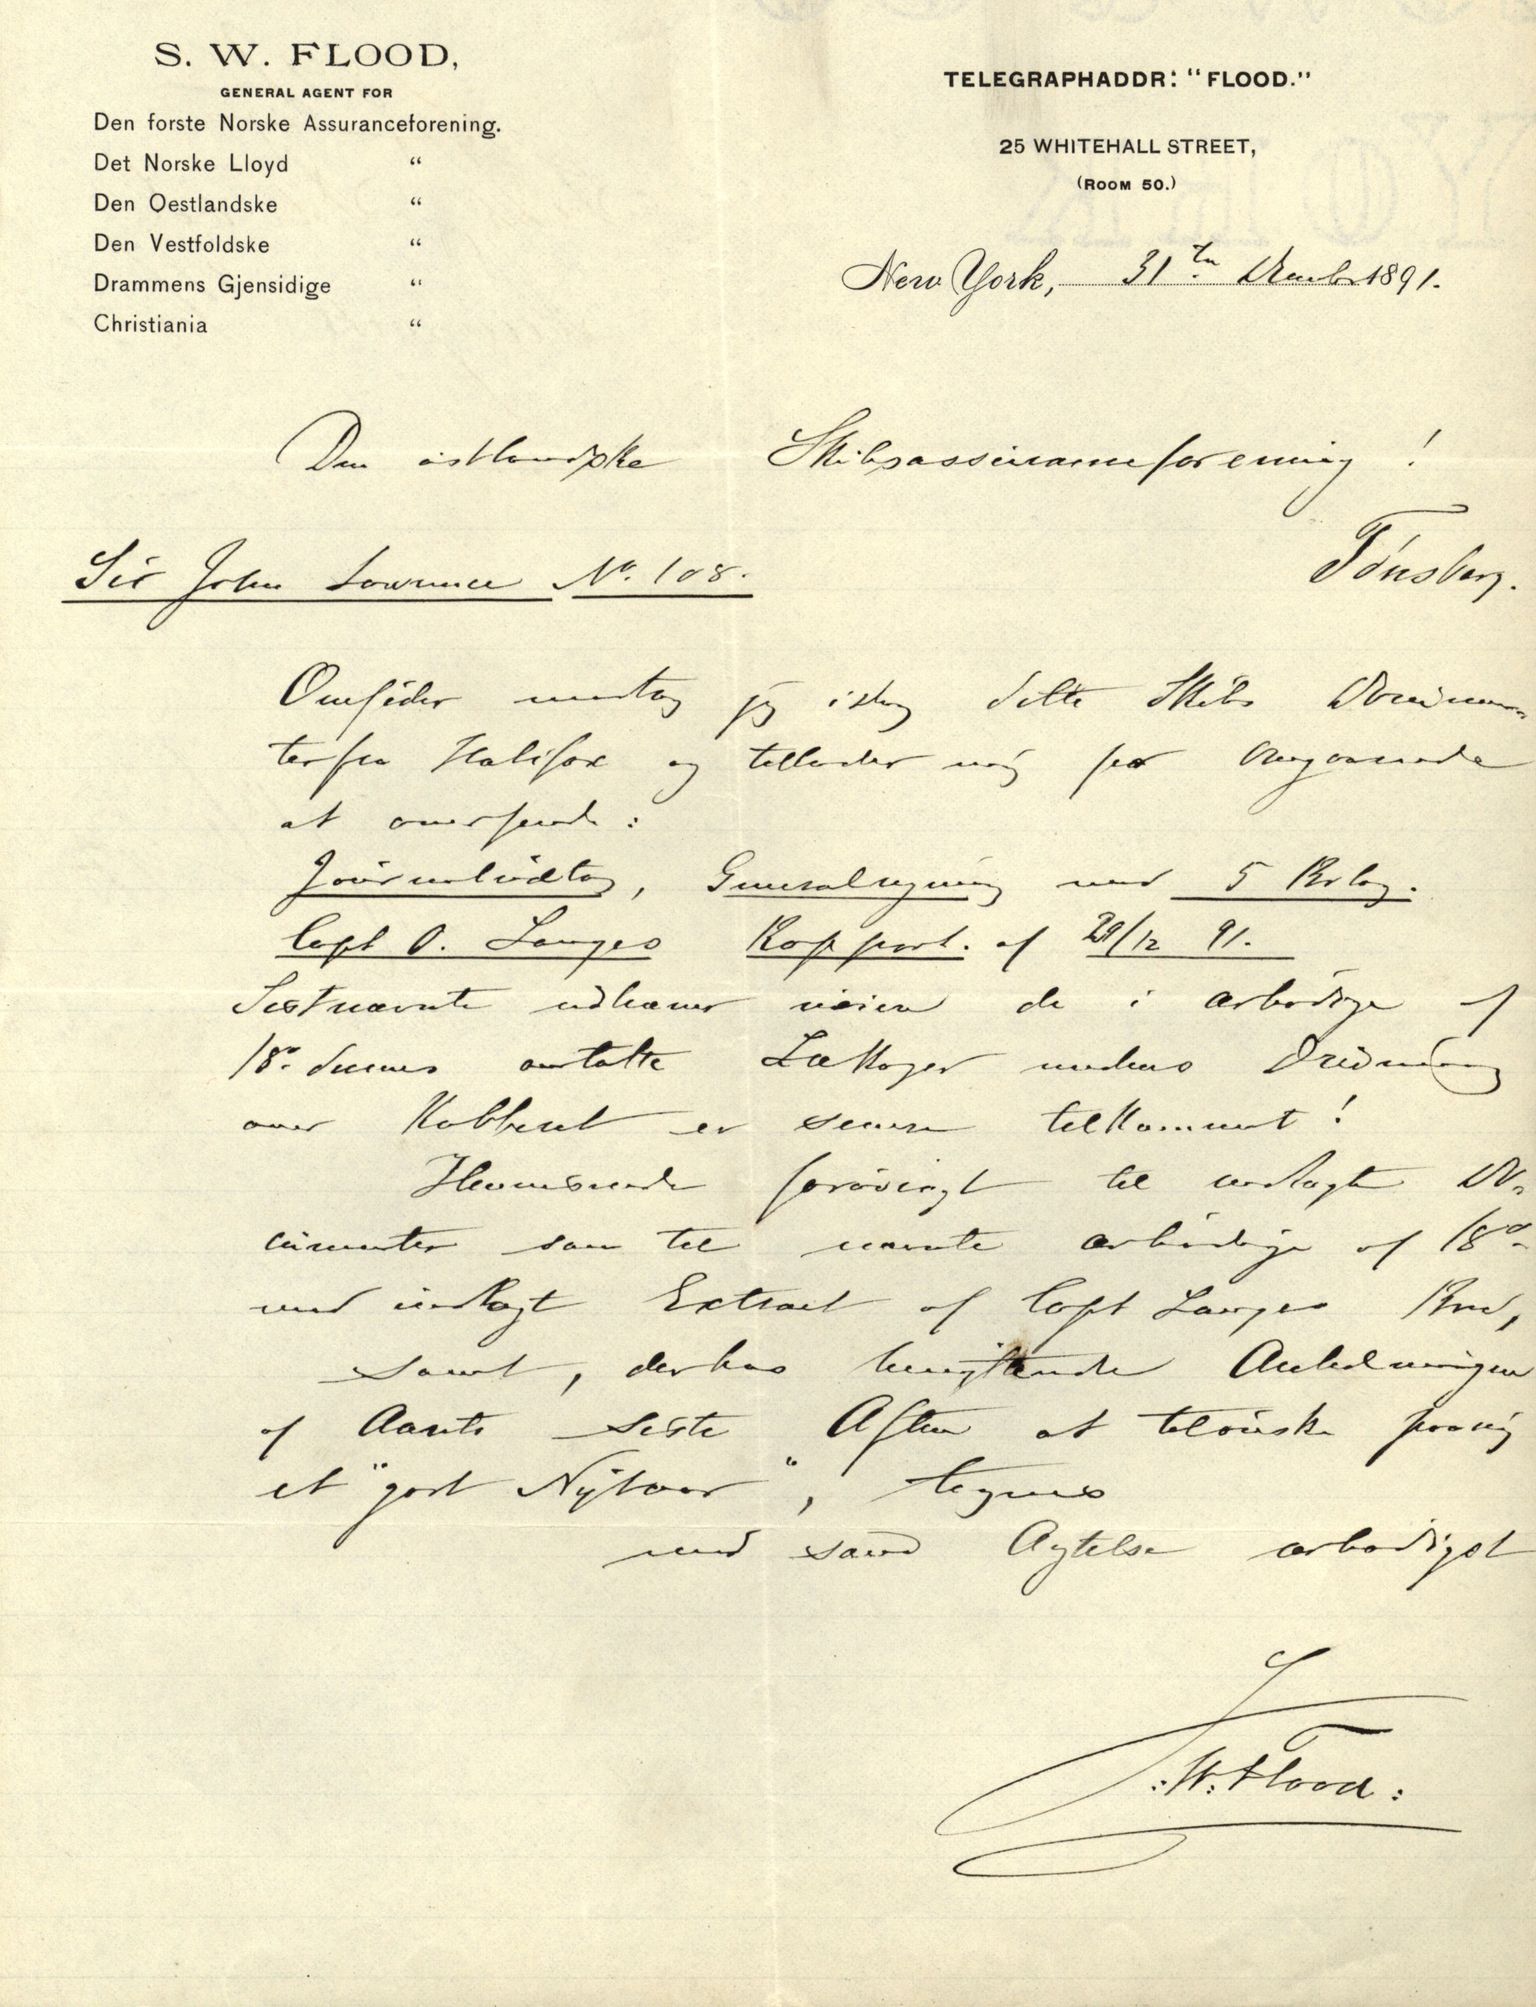 S. W. FLOOD,
GENERAL AGENT FOR
Den forste Norske Assuranceforening.
Det Norske Lloyd “
Den Oestlandske “
Den Vestfoldske “
Drammens Gjensidige “
Christiania “
TELEGRAPHADDR: “FLOOD.”
25 WHITEHALL STREET,
(ROOM 50.)
New York, 31te Decembr 1891.
Den østlandske Skibsassuranceforening !
Tønsberg.
Sir John Lawrence No. 108.
Omsider modtog jeg idag dette Skibs Documen-
ter fra Halifax og tillader mig for Angaaende
at oversende :
Journaludtog, Generalregning med 5 Bilag.
Capt O. Langes Rapport. af 29/12 91.
Sistnævnte udhæver de i ærbødige af
18de dennes Lækager medens
over Kobberet er senere tilkommet !
Henvisende forøvrigt til indlagte Do-
cumenter som til nævnte ærbødige af 18de
med indlagt Extract af Capt Langes Brev,
samt, derhos benyttende Anledningen
af Aarets siste Aften at tilønske
et “godt Nytaar”, tegnes
med sand Agtelse ærbødigst
S. W. Flood :